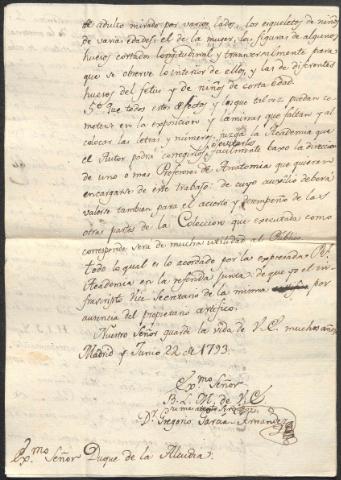 de adulto mirado por varios lados, los esqueletos de niños
de varias edades, el de la muger, las figuras de algunos
huesos cortados longitudinal y transversalmente para
que se observe lo interior de ellos, y las de diferentes
huesos del fetus y de niños de corta edad.
5º Que todos estos defectos y los que tal vez puedan co-
meterse en la exposicion y laminas que faltan y al
colocar las letras y numeros, juzga la Academia que
el Autor podrá corregirlos y evitarlos facilmente baxo la direccion
de uno o mas Profesores de Anatomia que quieran
encargarse de este trabajo: de cuyo auxilio deberá
valerse tambien para el acierto y desempeño de las
otras partes de la Coleccion que executada como
corresponde será de mucha utilidad al Publico.
Todo lo qual es lo acordado por la expresada Rl.
Academia en la referida Junta, de que yo el in-
frascripto Vice Secretario de la misma certifico por
ausencia del propietario
Nuestro Señor guarde la vida de V.E. muchos años
Madrid y Junio 22 de 1793.
Exmo Señor
B. L. M. de V.E.
su mas atento
Dr Gregorio Garcia Fernandez
Exmo Señor Duque de la Alcudia.